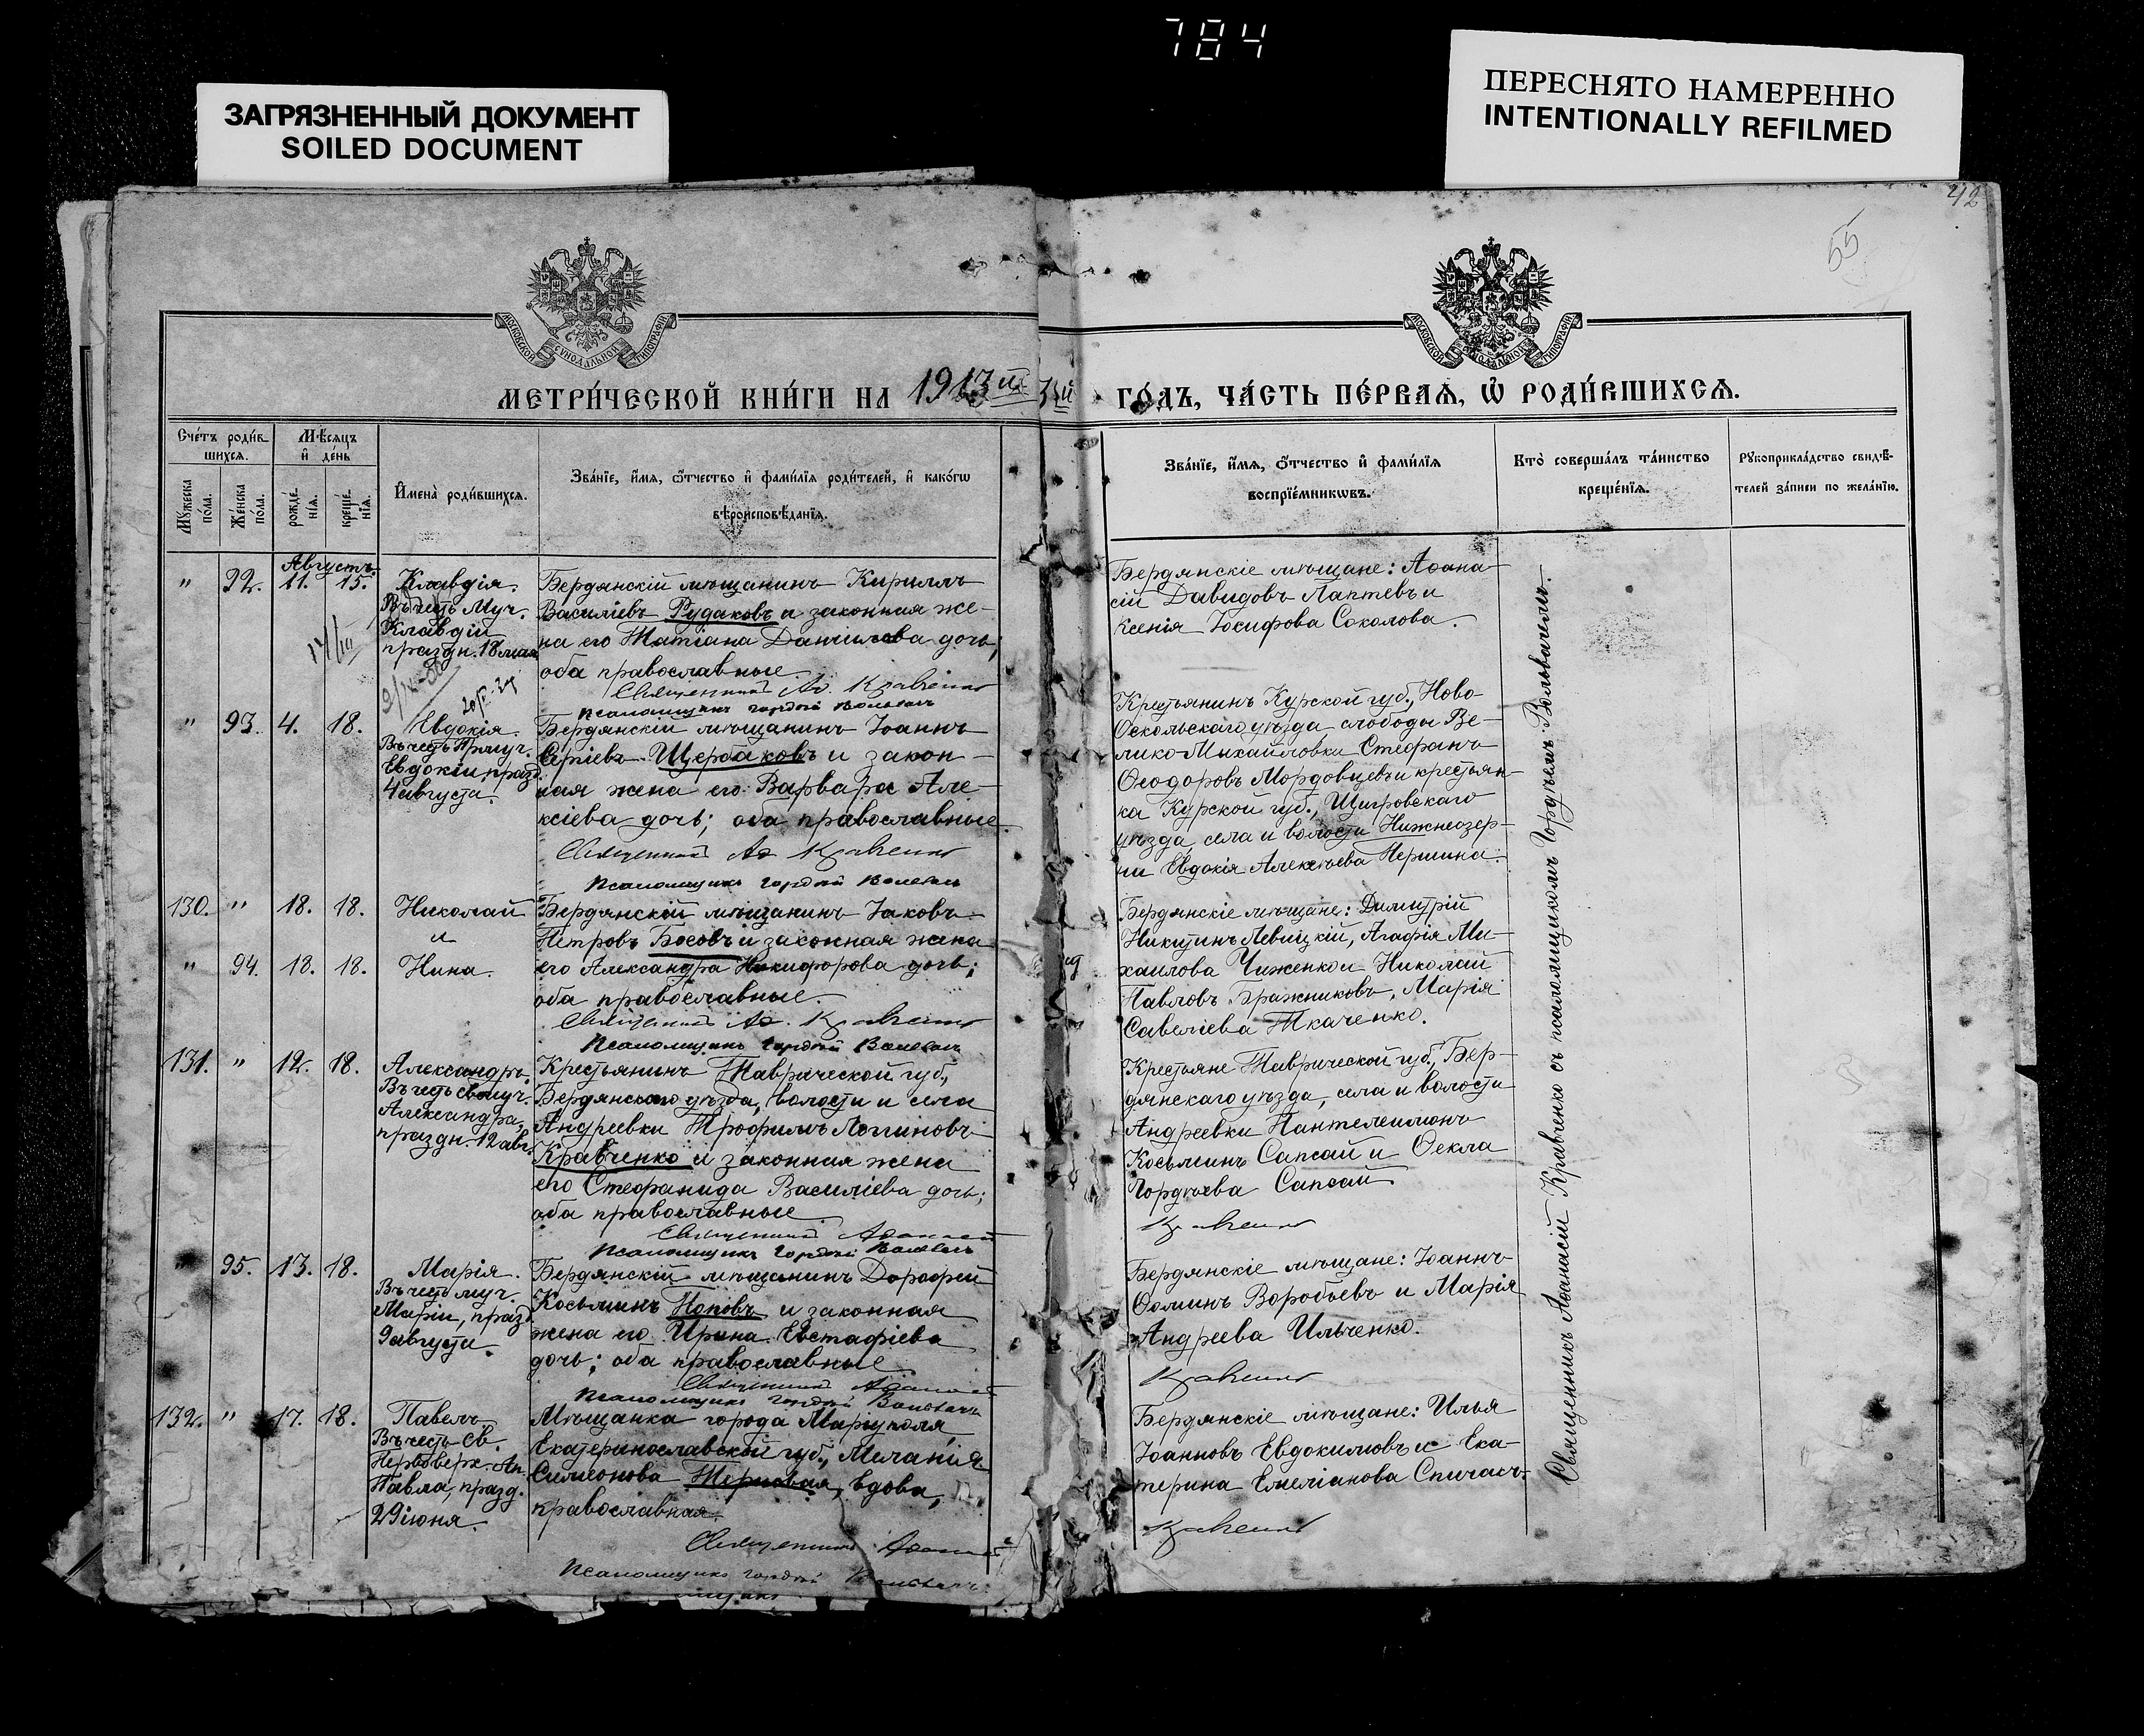 784
ЗАГРЯЗНЕННЫЙ ДОКУМЕНТ
SOILED DOCUMENT
ПЕРЕСНЯТО НАМЕРЕННО
INTENTIONALLY REFILMED
42
55
МОСКОВСКОЙ СѴНОДАЛЬНОЙ ТИПОГРАФІИ
МОСКОВСКОЙ СѴНОДАЛЬНОЙ ТИПОГРАФІИ
МЕТРИ́ЧЕСКОЙ КНИ́ГИ НА 1913й
3й ГО́ДЪ, ЧА́СТЬ ПЕ́РВАѦ, Ѽ РОДИ́ВШИХСѦ.
Сче́тъ роди́вшихсѧ.
Мѣ́сѧцъ и҆ де́нь
Мꙋ́жеска по́ла.
Же́нска по́ла.
рожде́нїѧ.
креще́нїѧ.
И҆мена̀ роди́вшихсѧ.
Зва́нїе, и҆́мѧ, ѻ҆́тчество и҆ фами́лїѧ роди́телей, и҆ како́гѡ
вѣроисповѣ́данїѧ.
Зва́нїе, и҆́мѧ, ѻ҆́тчество и҆ фами́лїѧ
воспрїе́мникѡвъ.
Кто̀ соверша́лъ та́инство
креще́нїѧ.
Рꙋкоприкла́дство свидѣ́-
телей за́писи по жела́нїю.
Августъ.
" 92. 11. 15.
Клавдія.
Въ честь Муч.
Клавдіи
праздн. 18 мая
Бердянскій мѣщанинъ Кириллъ
Василіевъ Рудаковъ и законная же-
на его Татіана Даниилова дочь;
оба православные.
Священникъ Аѳ. Кравченко
Псаломщикъ Гордѣй
Бердянскіе мѣщане: Аѳана-
сій Давидовъ Лаптевъ и
Ксенія Іосифова Соколова.
" 93. 4. 18.
Евдокія.
Въ честь Прмуч.
Евдокіи, празд.
4 августа.
Бердянскій мѣщанинъ Іоаннъ
Сергіевъ Щербаковъ и закон-
ная жена его Варвара Але-
ксіева дочь; оба православные.
Священникъ Аѳ. Кравченко
Псаломщикъ Гордѣй
Крестьянинъ Курской губ., Ново-
Оскольскаго уѣзда слободы Ве-
лико-Михайловки Стефанъ
Ѳеодоровъ Мордовцевъ и крестьян-
ка Курской губ., Щигровскаго
уѣзда, села и волости Нижнеозер-
ни Евдокія Алексѣева
130. " 18. 18.
Николай
и
" 94. 18. 18.
Нина.
Бердянскій мѣщанинъ Іаковъ
Петровъ Босовъ и законная жена
его Александра Никифорова дочь;
оба православные.
Священникъ Аѳ. Кравченко
Псаломщикъ Гордѣй
Бердянскіе мѣщане: Димитрій
Никитинъ Левицкій, Агафія Ми-
хаилова Чиженко и Николай
Павловъ Бражниковъ, Марія
Савеліева Ткаченко.
131. " 12. 18.
Александръ.
Въ честь св. муч.
Александра,
праздн. 12 авг.
Крестьянинъ Таврической губ.,
Бердянскаго уѣзда, волости и села
Андреевки Трофимъ Логиновъ
Кравченко и законная жена
его Стефанида Василіева дочь;
оба православные
Священникъ Аѳанасій
Псаломщикъ Гордѣй
Крестьяне Таврической губ., Бер-
дянскаго уѣзда, села и волости
Андреевки Пантелеимонъ
Косьминъ Сапсай и Ѳекла
Гордѣева Сапсай
Кравченко
" 95. 13. 18.
Марія.
Въ честь муч.
Маріи, празд.
9 августа.
Бердянскій мѣщанинъ Дорофей
Косьминъ Поповъ и законная
жена его Ирина Евстафіева
дочь; оба православные
Священникъ Аѳанасій
Псаломщикъ Гордѣй
Бердянскіе мѣщане: Іоаннъ
Ѳоминъ Воробьевъ и Марія
Андреева Ильченко.
Кравченко
132. " 17. 18.
Павелъ
Въ честь св.
Первоверх. Ап.
Павла, празд.
29 іюня.
Мѣщанка города Маріуполя,
Екатеринославской губ., Меланія
Симеонова вдова,
православная.
Священникъ Аѳанасій
Псаломщикъ Гордѣй
Бердянскіе мѣщане: Илья
Іоанновъ Евдокимовъ и Ека-
терина Емеліанова
Кравченко
Священникъ Аѳанасій Кравченко съ псаломщикомъ Гордѣемъ